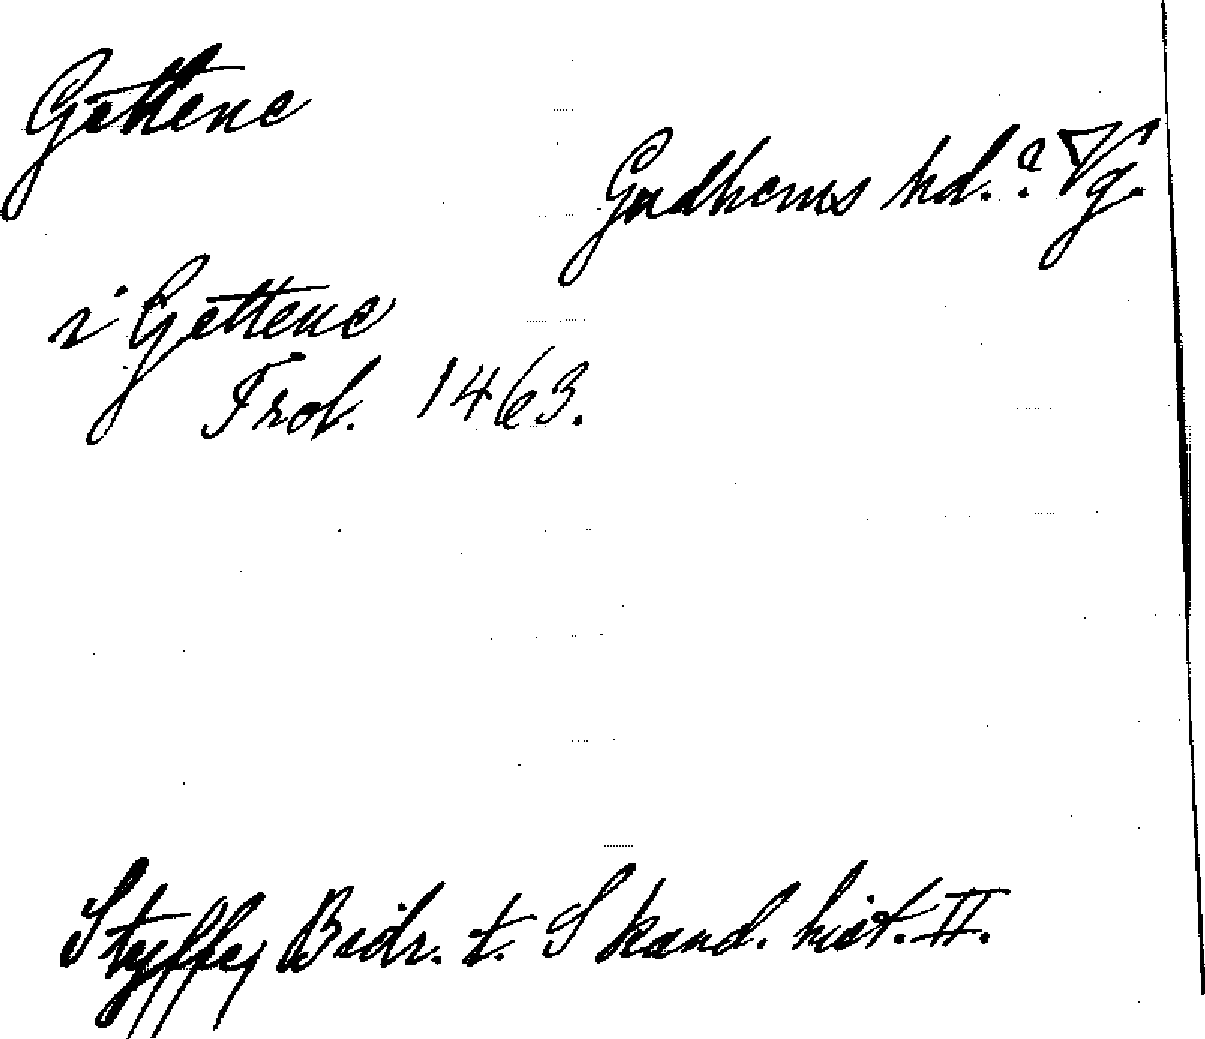 Gettene
Gudhems hd.? Vg.
i Gettene
Trol. 1463.
Styffe, Bidr. t. Skand. hist. II.